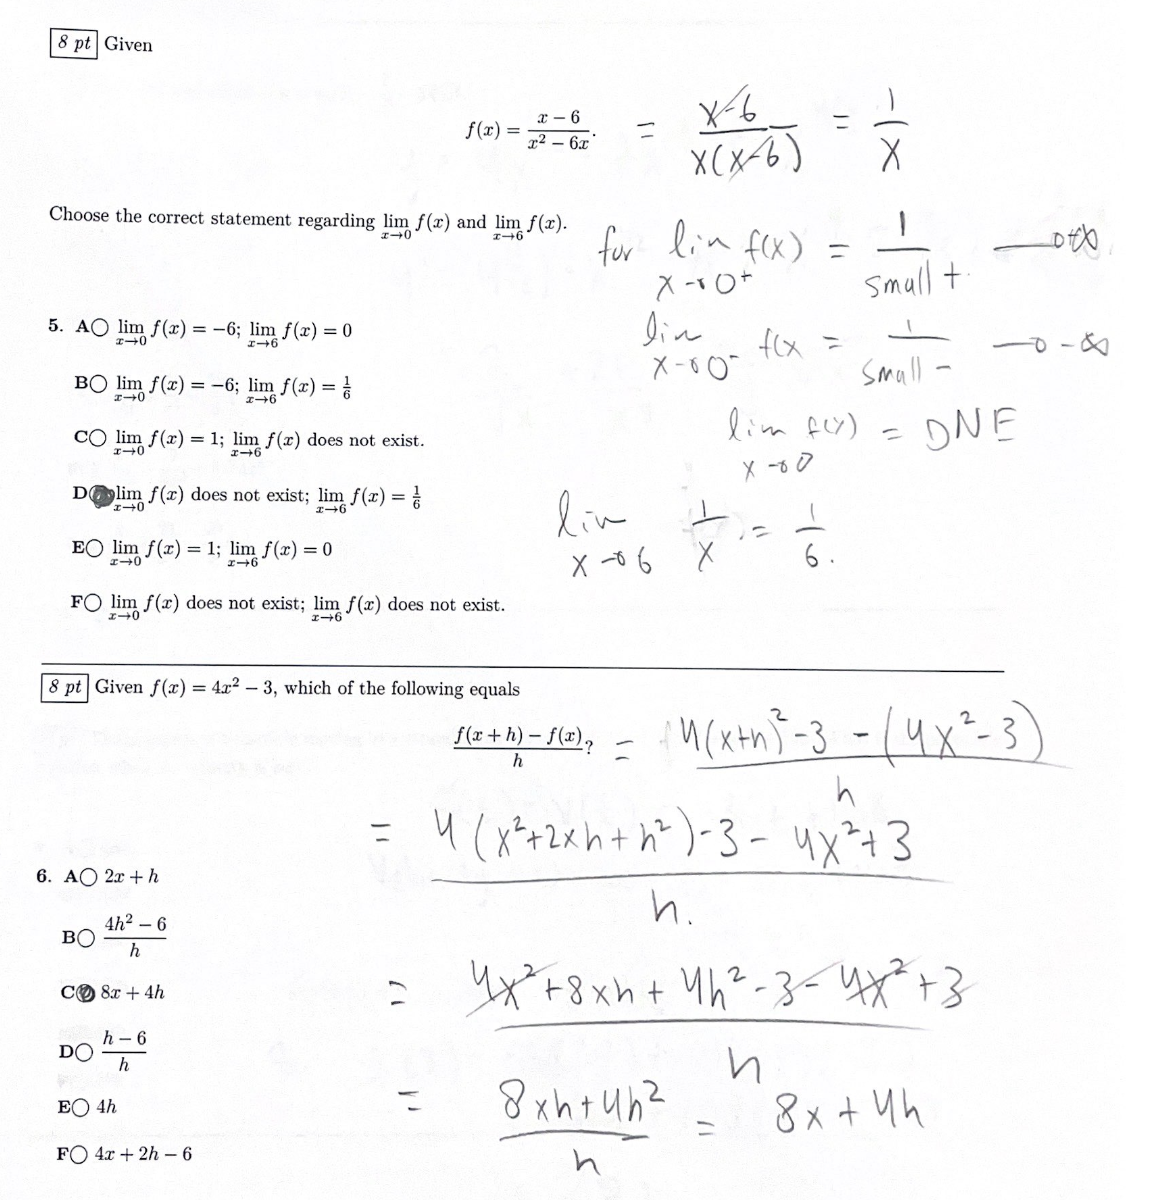 8 pt Given
f(x) = (x − 6)/(x² − 6x). = (x-6)/(x(x-6)) = 1/x
Choose the correct statement regarding lim x→0 f(x) and lim x→6 f(x).
for lim x→0+ f(x) = 1/small + → +∞
5. A○ lim x→0 f(x) = −6; lim x→6 f(x) = 0
lim x→0- f(x = 1/small - → -∞
B○ lim x→0 f(x) = −6; lim x→6 f(x) = 1/6
C○ lim x→0 f(x) = 1; lim x→6 f(x) does not exist.
lim x→0 f(x) = DNE
D● lim x→0 f(x) does not exist; lim x→6 f(x) = 1/6
lim x→6 1/x = 1/6.
E○ lim x→0 f(x) = 1; lim x→6 f(x) = 0
F○ lim x→0 f(x) does not exist; lim x→6 f(x) does not exist.
8 pt Given f(x) = 4x² − 3, which of the following equals
(f(x + h) − f(x))/h ? = (4(x+h)²-3-(4x²-3))/h
= (4(x²+2xh+h²)-3-4x²+3)/h.
6. A○ 2x + h
B○ (4h² − 6)/h
C● 8x + 4h
= (4x²+8xh+4h²-3-4x²+3)/h
D○ (h − 6)/h
E○ 4h
= (8xh+4h²)/h = 8x+4h
F○ 4x + 2h − 6